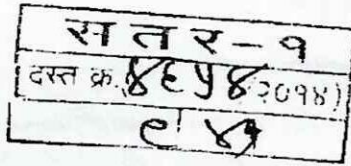 स त र - १
दस्त क्र. ४६५४ २०१४)
९